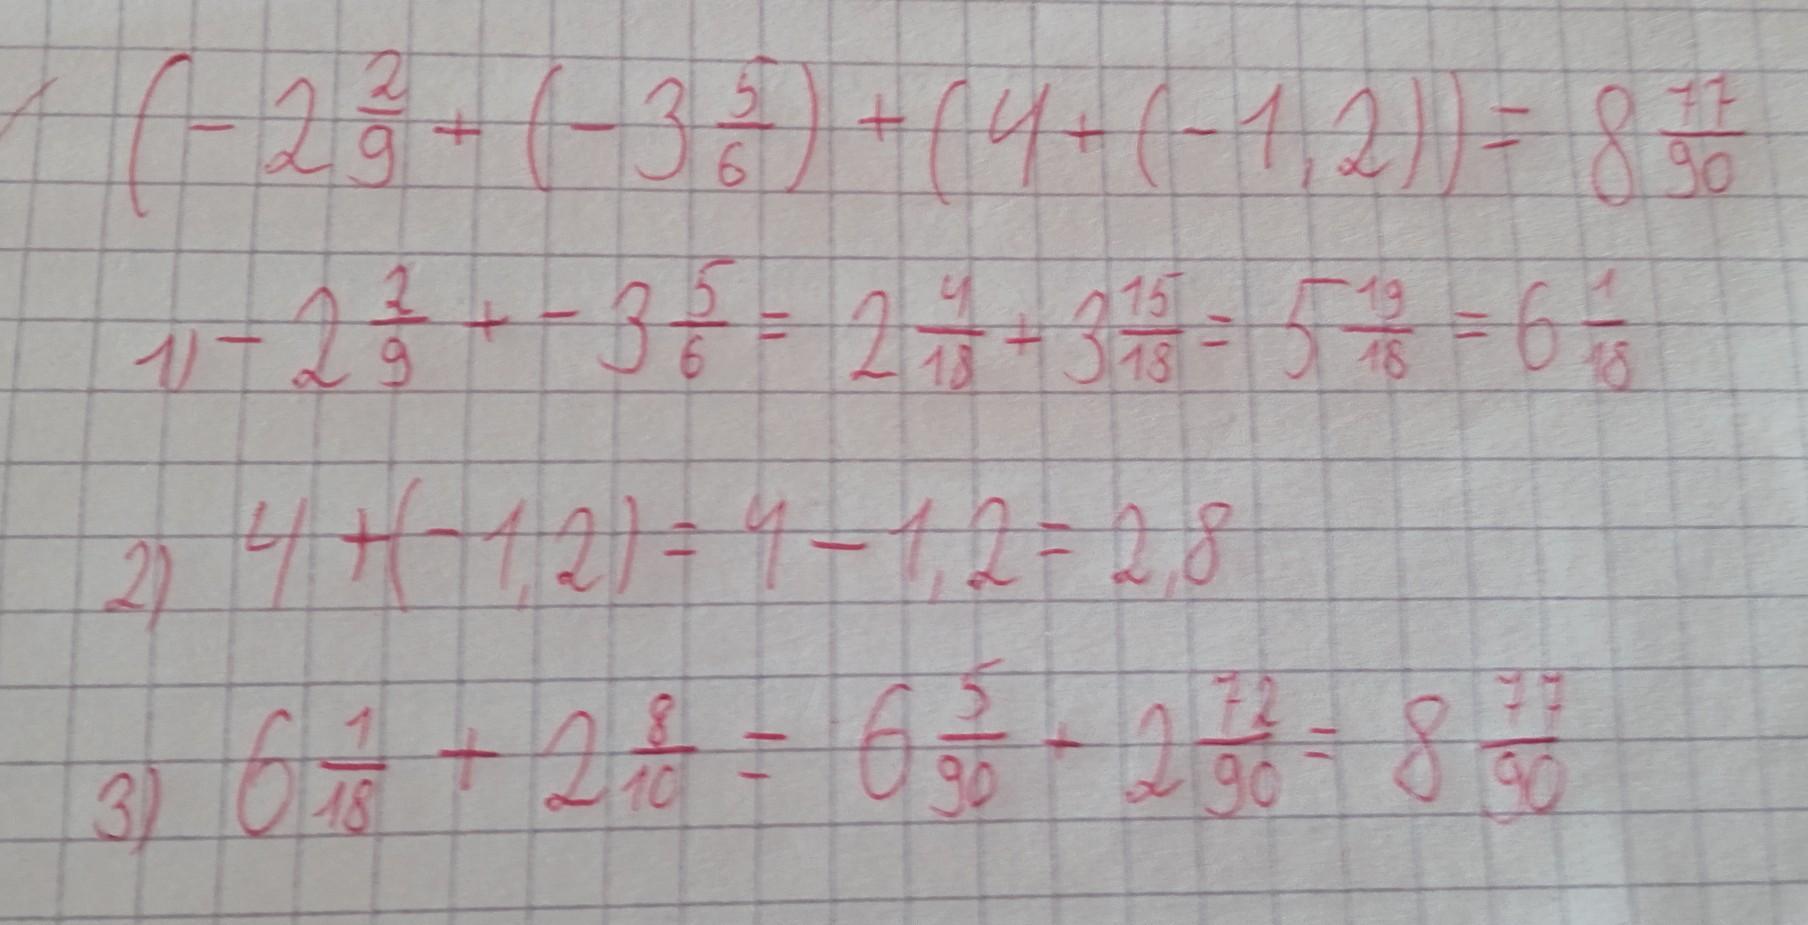 (-2 2/9 + (-3 5/6) + (4 + (-1,2)) = 8 77/90
1) -2 2/9 + -3 5/6 = 2 4/18 + 3 15/18 = 5 19/18 = 6 1/18
2) 4 + (-1,2) = 4 - 1,2 = 2,8
3) 6 1/18 + 2 8/10 = 6 5/90 + 2 72/90 = 8 77/90